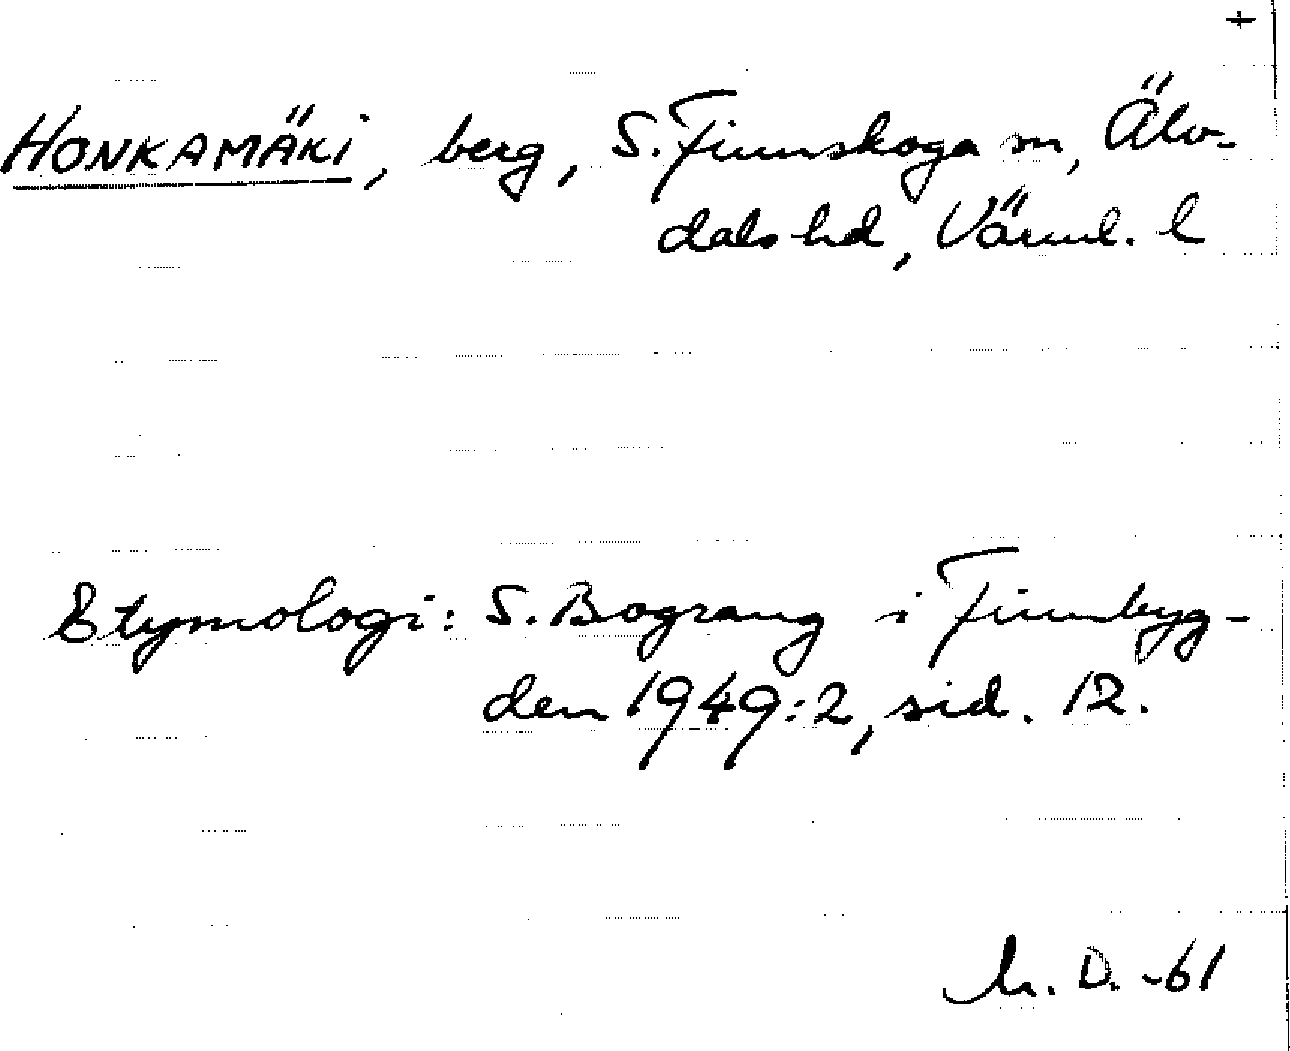 +
HONKAMÄKI, berg, S. Finnskoga sn, Älv-
dals hd, Värml. l
Etymologi: S. Bograng i Finnbyg-
den 1949:2, sid. 12.
D. -61